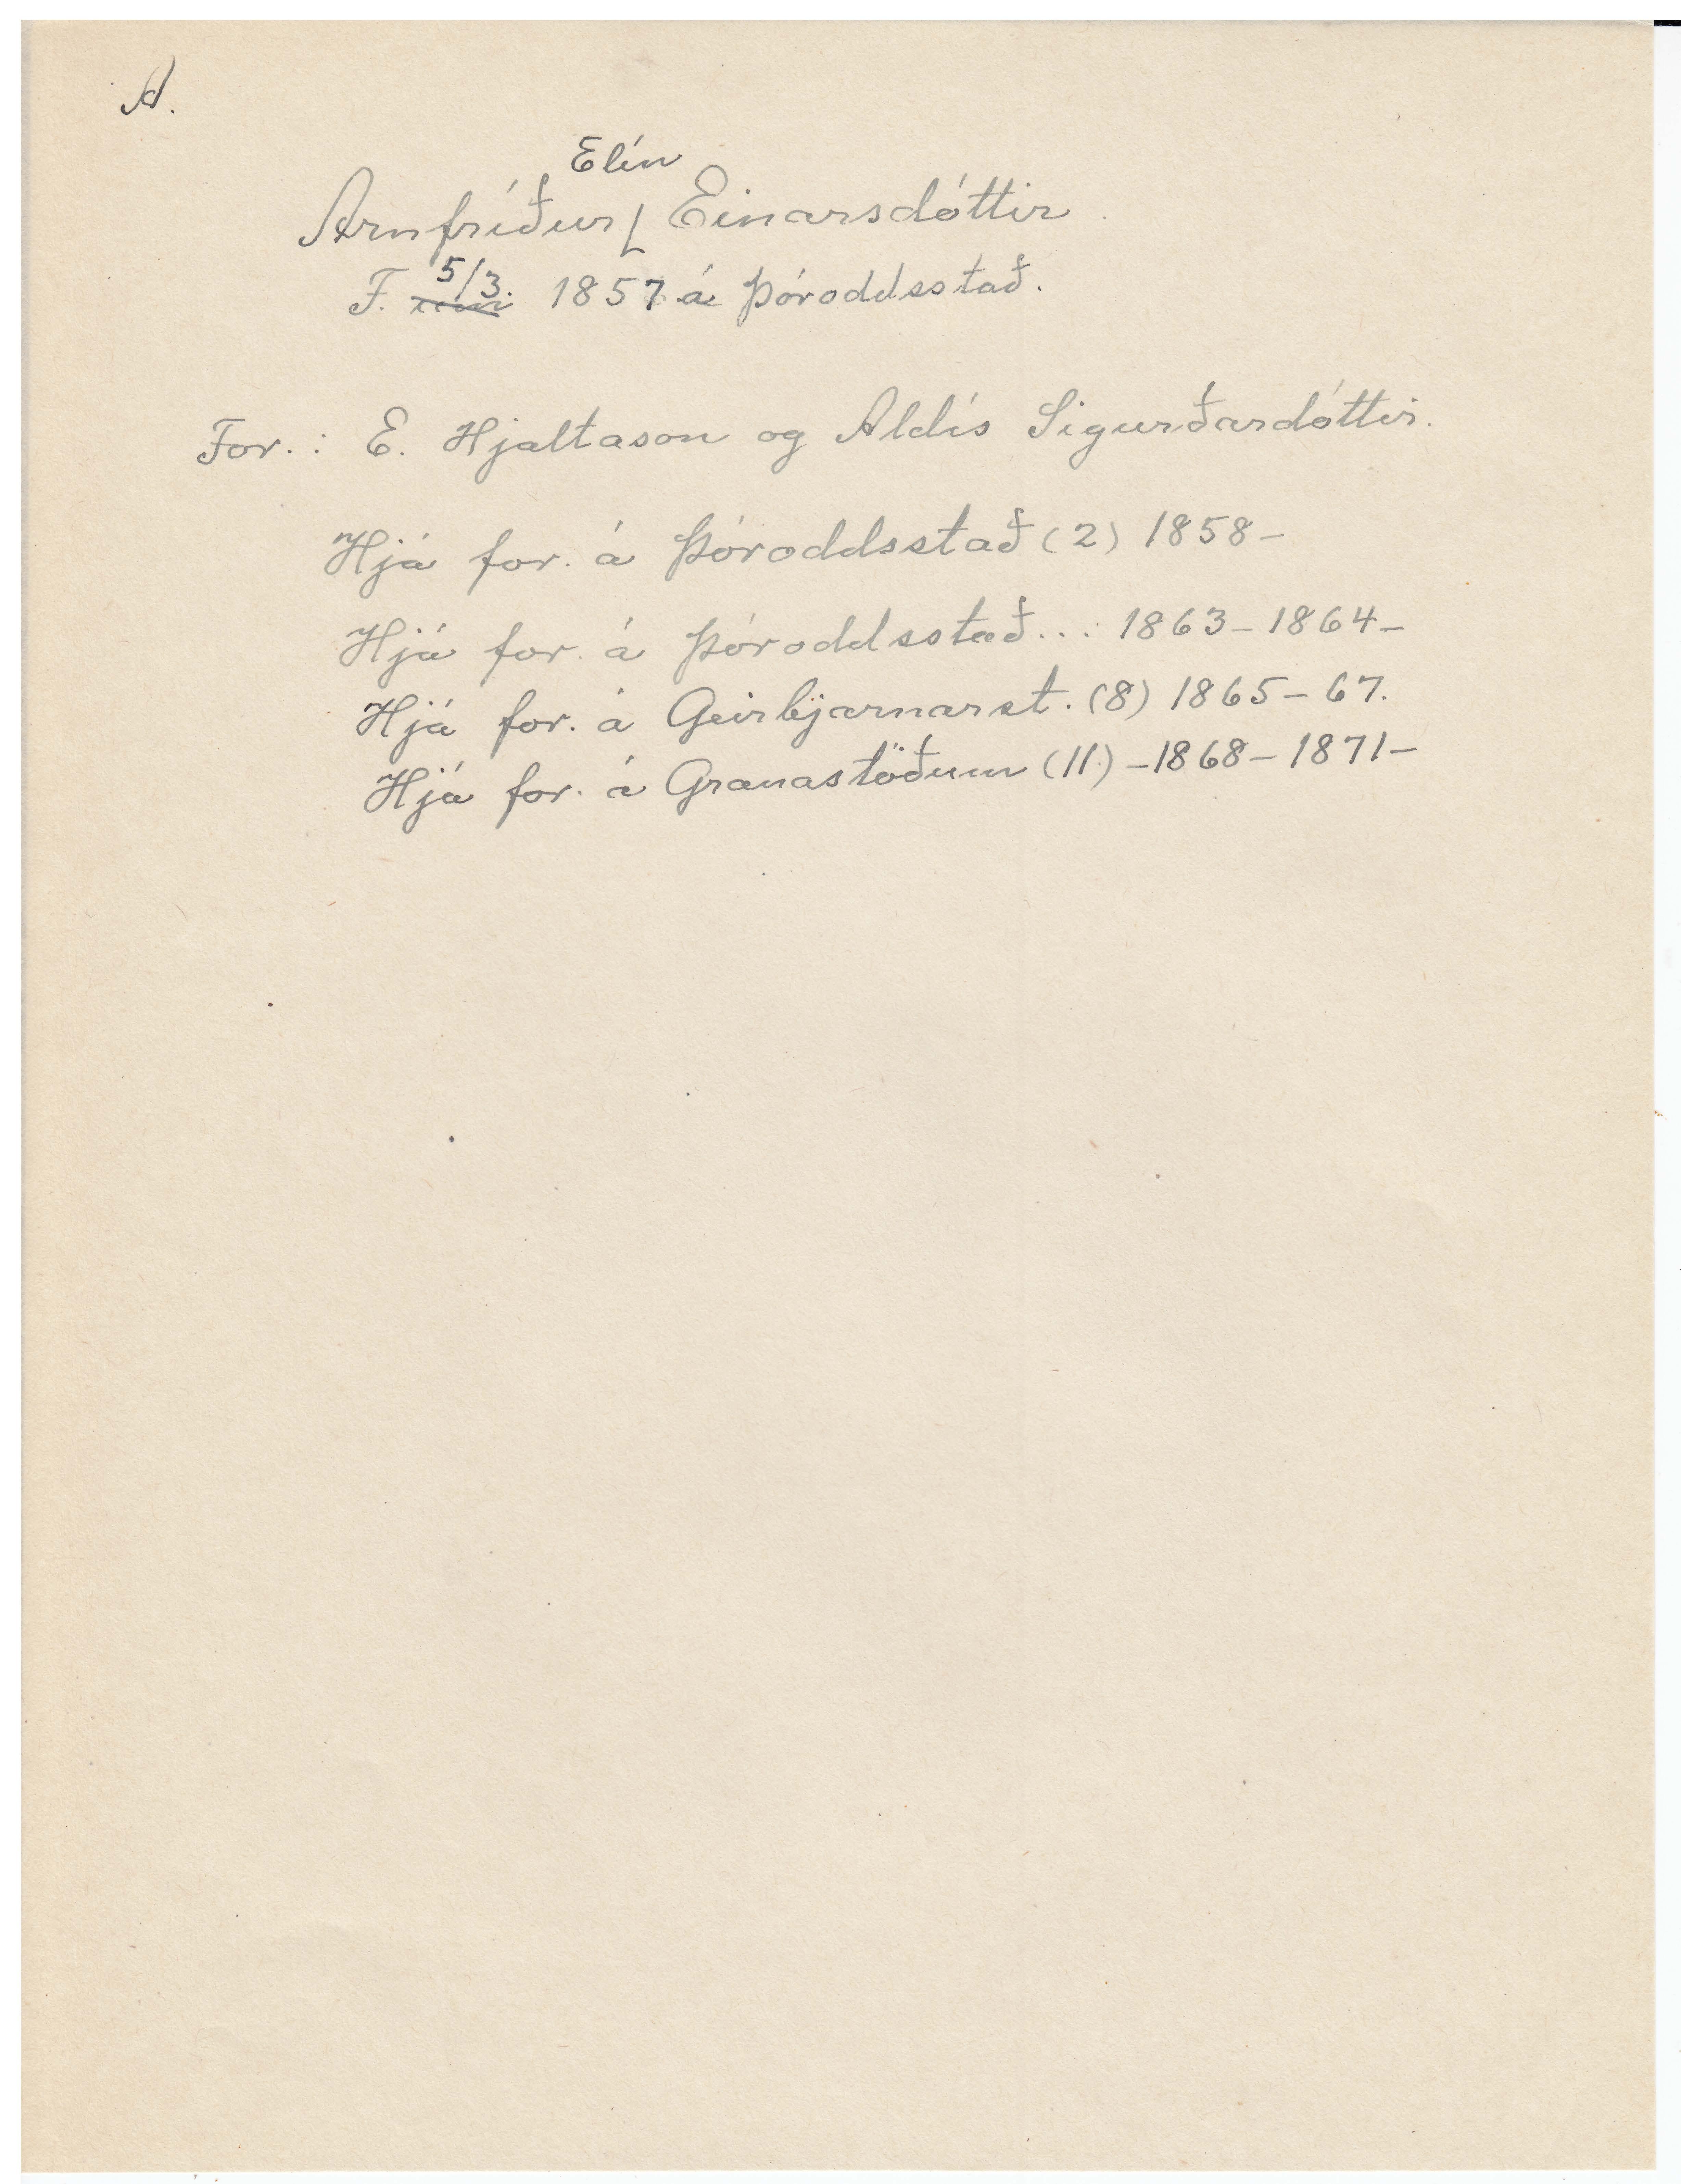 A.
Elín
Arnfríður Einarsdóttir
F. 5/3. 1857 á Þóroddsstað.
For.: E. Hjaltason og Aldís Sigurðardóttir.
Hjá for. á Þóroddsstað (2) 1858-
Hjá for. á Þóroddsstað... 1863-1864-
Hjá for. á Geirbjarnarst. (8) 1865-67.
Hjá for. á Granastöðum (11) -1868-1871-